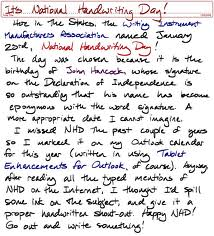 It's National Handwriting Day!
Here in the States, the Writing Instrument
Manufacturers Association named January
23rd, National Handwriting Day!
The day was chosen because it is the
birthday of John Hancock, whose signature
on the Declaration of Independence is
so outstanding that his name has become
eponymous with the word signature. A
more appropriate date I cannot imagine.
I missed NHD the past couple of years
so I marked it on my Outlook calendar
for this year (written in using Tablet
Enhancements for Outlook, of course). Anyway
after reading all the typed mentions of
NHD on the Internet, I thought I'd spill
some ink on the subject, and give it a
proper handwritten shout-out. Happy NHD!
Go out and write something!